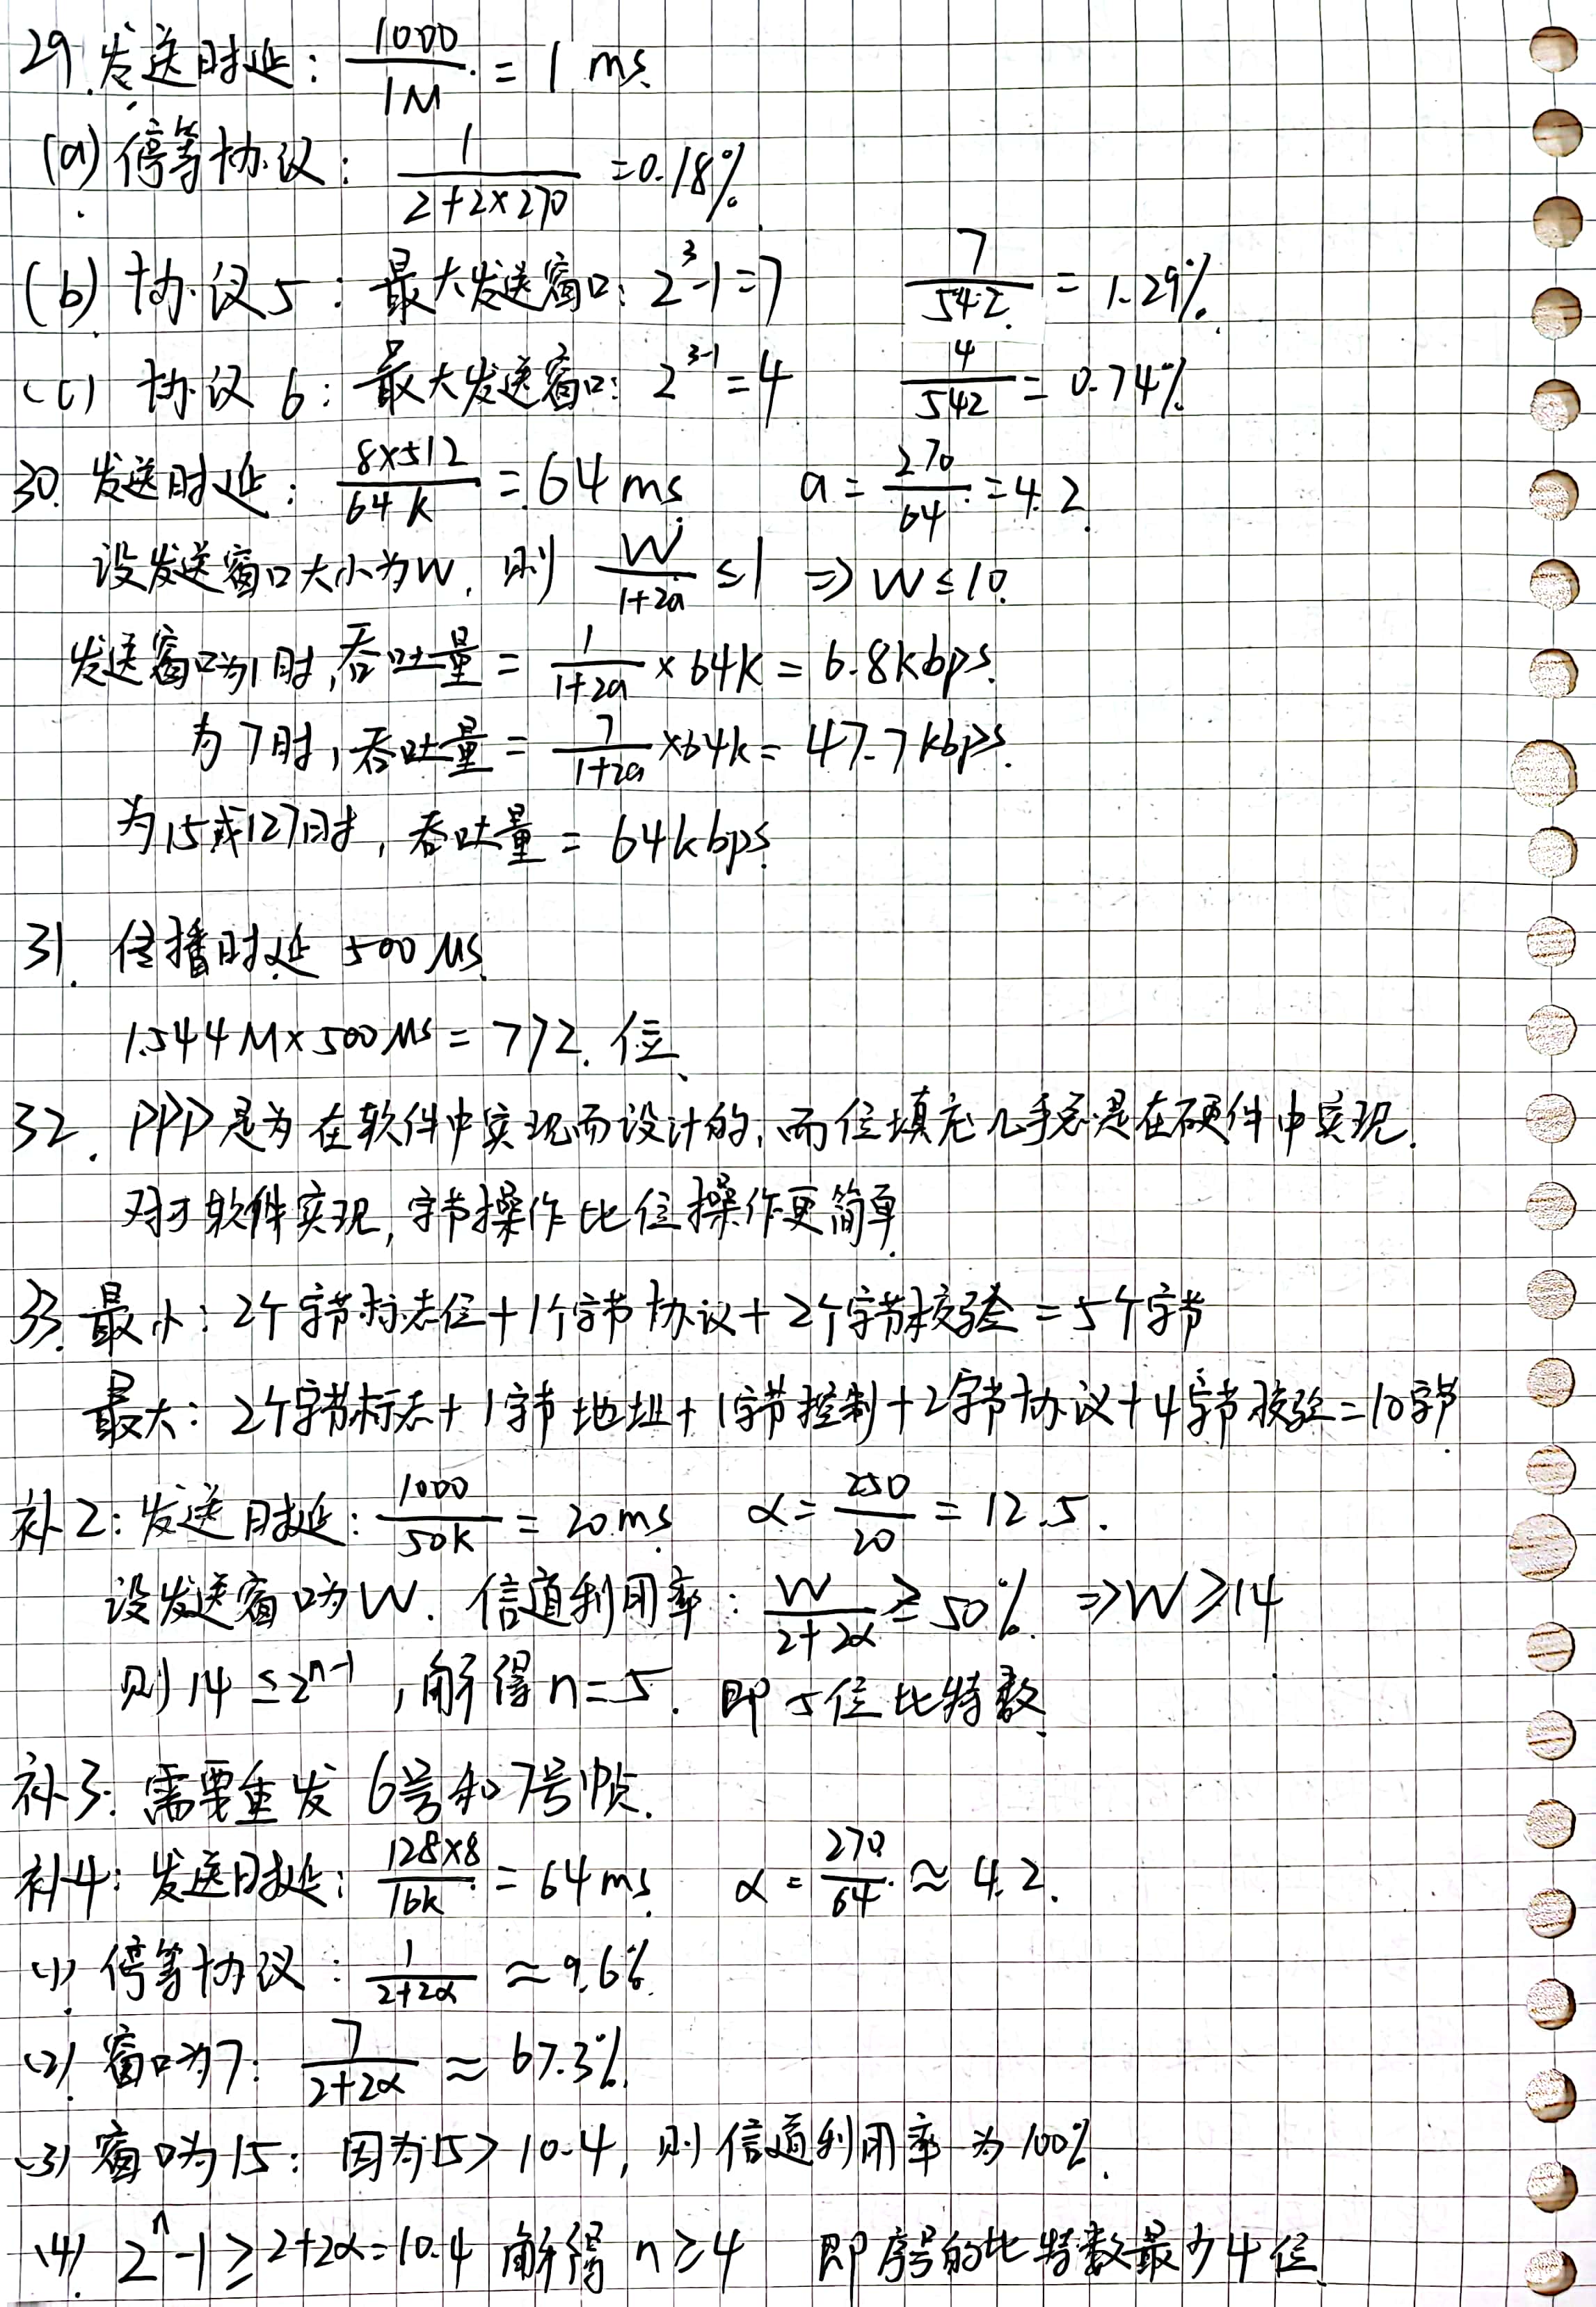 29. 发送时延: 1000/1M = 1 ms.
(a) 停等协议: 1/(2+2×270) = 0.18%.
(b) 协议5: 最大发送窗口: 2^3-1=7 7/542 = 1.29%.
(c) 协议6: 最大发送窗口: 2^(3-1)=4 4/542 = 0.74%.
30. 发送时延: 8×512/64k = 64 ms. a = 270/64 = 4.2.
设发送窗口大小为W, 则 W/(1+2a) ≤ 1 ⇒ W ≤ 10.
发送窗口为1时,吞吐量 = 1/(1+2a) × 64k = 6.8kbps.
为7时,吞吐量 = 7/(1+2a) × 64k = 47.7kbps.
为15或127时, 吞吐量 = 64kbps.
31. 传播时延 500μs.
1.544M×500μs = 772. 位.
32. PPP是为在软件中实现而设计的,而位填充几乎总是在硬件中实现.
对于软件实现,字节操作比位操作更简单.
33. 最小: 2个字节标志位+1个字节协议+2个字节校验=5个字节
最大: 2个字节标志+1字节地址+1字节控制+2字节协议+4字节校验=10字节.
补2: 发送时延: 1000/50k = 20ms. α = 250/20 = 12.5.
设发送窗口为W. 信道利用率: W/(2+2α) ≥ 50%. ⇒ W ≥ 14
则 14 ≤ 2^(n-1), 解得 n=5. 即5位比特数.
补3: 需要重发 6号和7号帧.
补4: 发送时延: 128×8/16k = 64ms. α = 270/64 ≈ 4.2.
(1) 停等协议: 1/(2+2α) ≈ 9.6%.
(2) 窗口为7: 7/(2+2α) ≈ 67.3%.
(3) 窗口为15: 因为15>10.4, 则信道利用率为100%.
(4) 2^n-1 ≥ 2+2α=10.4 解得 n≥4 即序号的比特数最少4位.